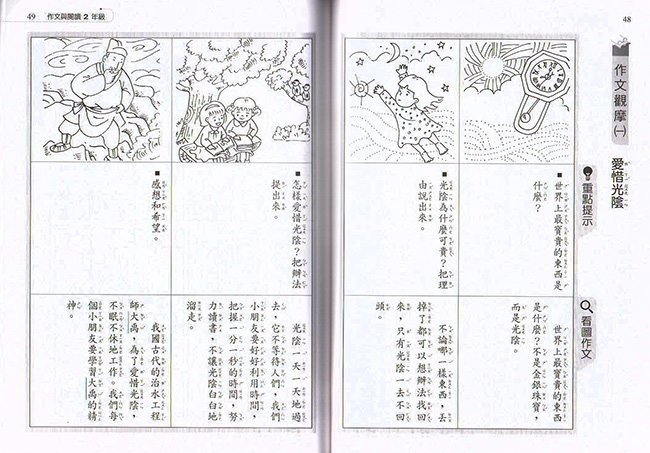 48
作文觀摩(一)
愛惜光陰
重點提示
看圖作文
世界上最寶貴的東西是
什麼?
世界上最寶貴的東西
是什麼?不是金銀珠寶,
而是光陰。
光陰為什麼可貴?把理
由說出來。
不論哪一樣東西,丟
掉了都可以想辦法找回
來,只有光陰一去不回
頭。
49
作文與閱讀 2 年級
怎樣愛惜光陰?把辦法
提出來。
光陰一天一天地過
去,它不等待人們,我們
小朋友要好好利用時間,
把握一分一秒的時間,努
力讀書,不讓光陰白白地
溜走。
感想和希望。
我國古代的治水工程
師大禹,為了愛惜光陰,
不眠不休地工作。我們每
個小朋友要學習大禹的精
神。